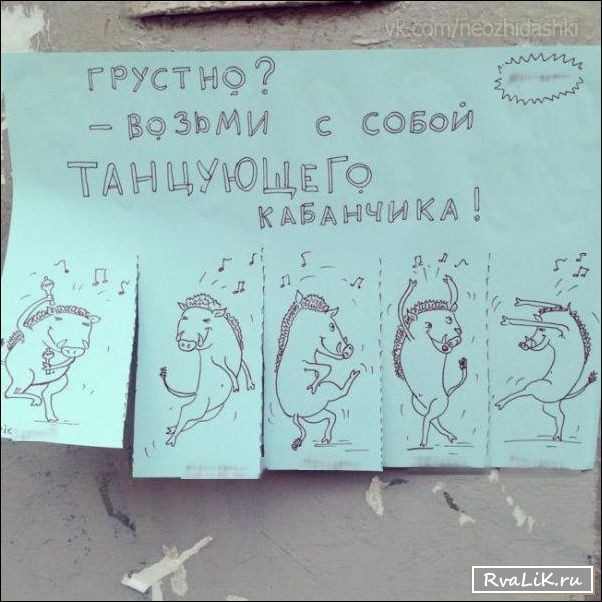 vk.com/neozhidashki
ГРУСТНО?
– ВОЗЬМИ С СОБОЙ
ТАНЦУЮЩЕГО
КАБАНЧИКА!
RvaLiK.ru